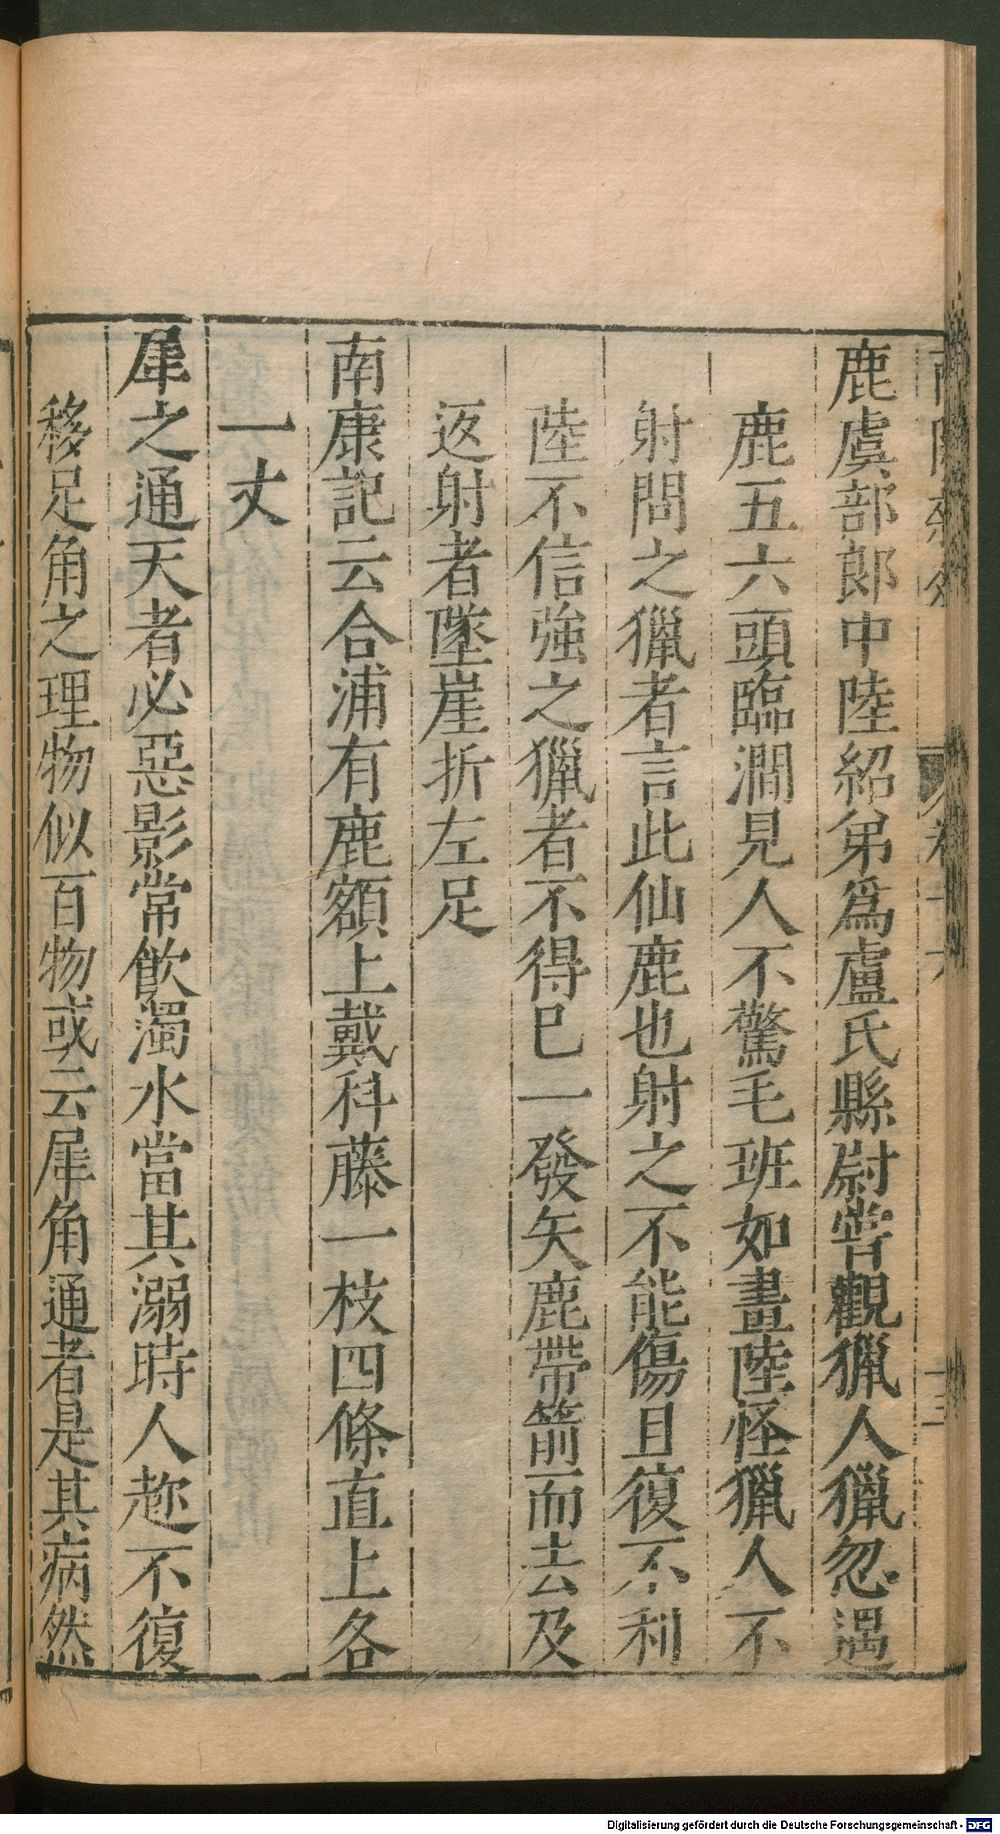 鹿虞部郎中陸紹弟爲盧氏縣尉嘗觀獵人獵忽遇
鹿五六頭臨澗見人不驚毛班如畫陸怪獵人不
射問之獵者言此仙鹿也射之不能傷且復不利
陸不信強之獵者不得已一發矢鹿帶箭而去及
返射者墜崖折左足
南康記云合浦有鹿額上戴科藤一枝四條直上各
一丈
犀之通天者必惡影常飲濁水當其溺時人趂不復
移足角之理物似百物或云犀角通者是其病然
Digitalisierung gefördert durch die Deutsche Forschungsgemeinschaft - DFG